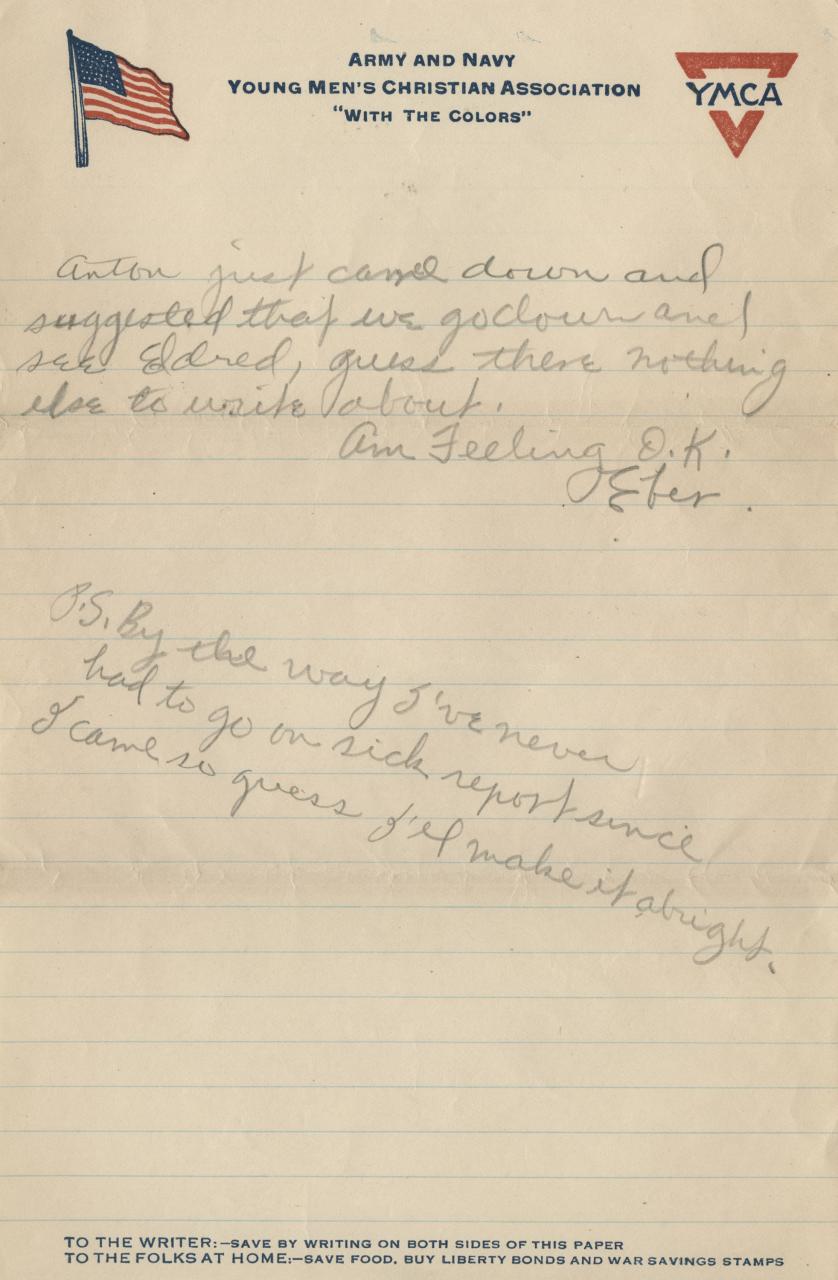 ARMY AND NAVY
YOUNG MEN'S CHRISTIAN ASSOCIATION
"WITH THE COLORS"
YMCA
Anton just came down and
suggested that we go down and
see Eldred, guess there nothing
else to write about.
Am Feeling O.K.
Eber.
P.S. By the way I've never
had to go on sick report since
I came so guess I'el make it alright.
TO THE WRITER:—SAVE BY WRITING ON BOTH SIDES OF THIS PAPER
TO THE FOLKS AT HOME:—SAVE FOOD, BUY LIBERTY BONDS AND WAR SAVINGS STAMPS